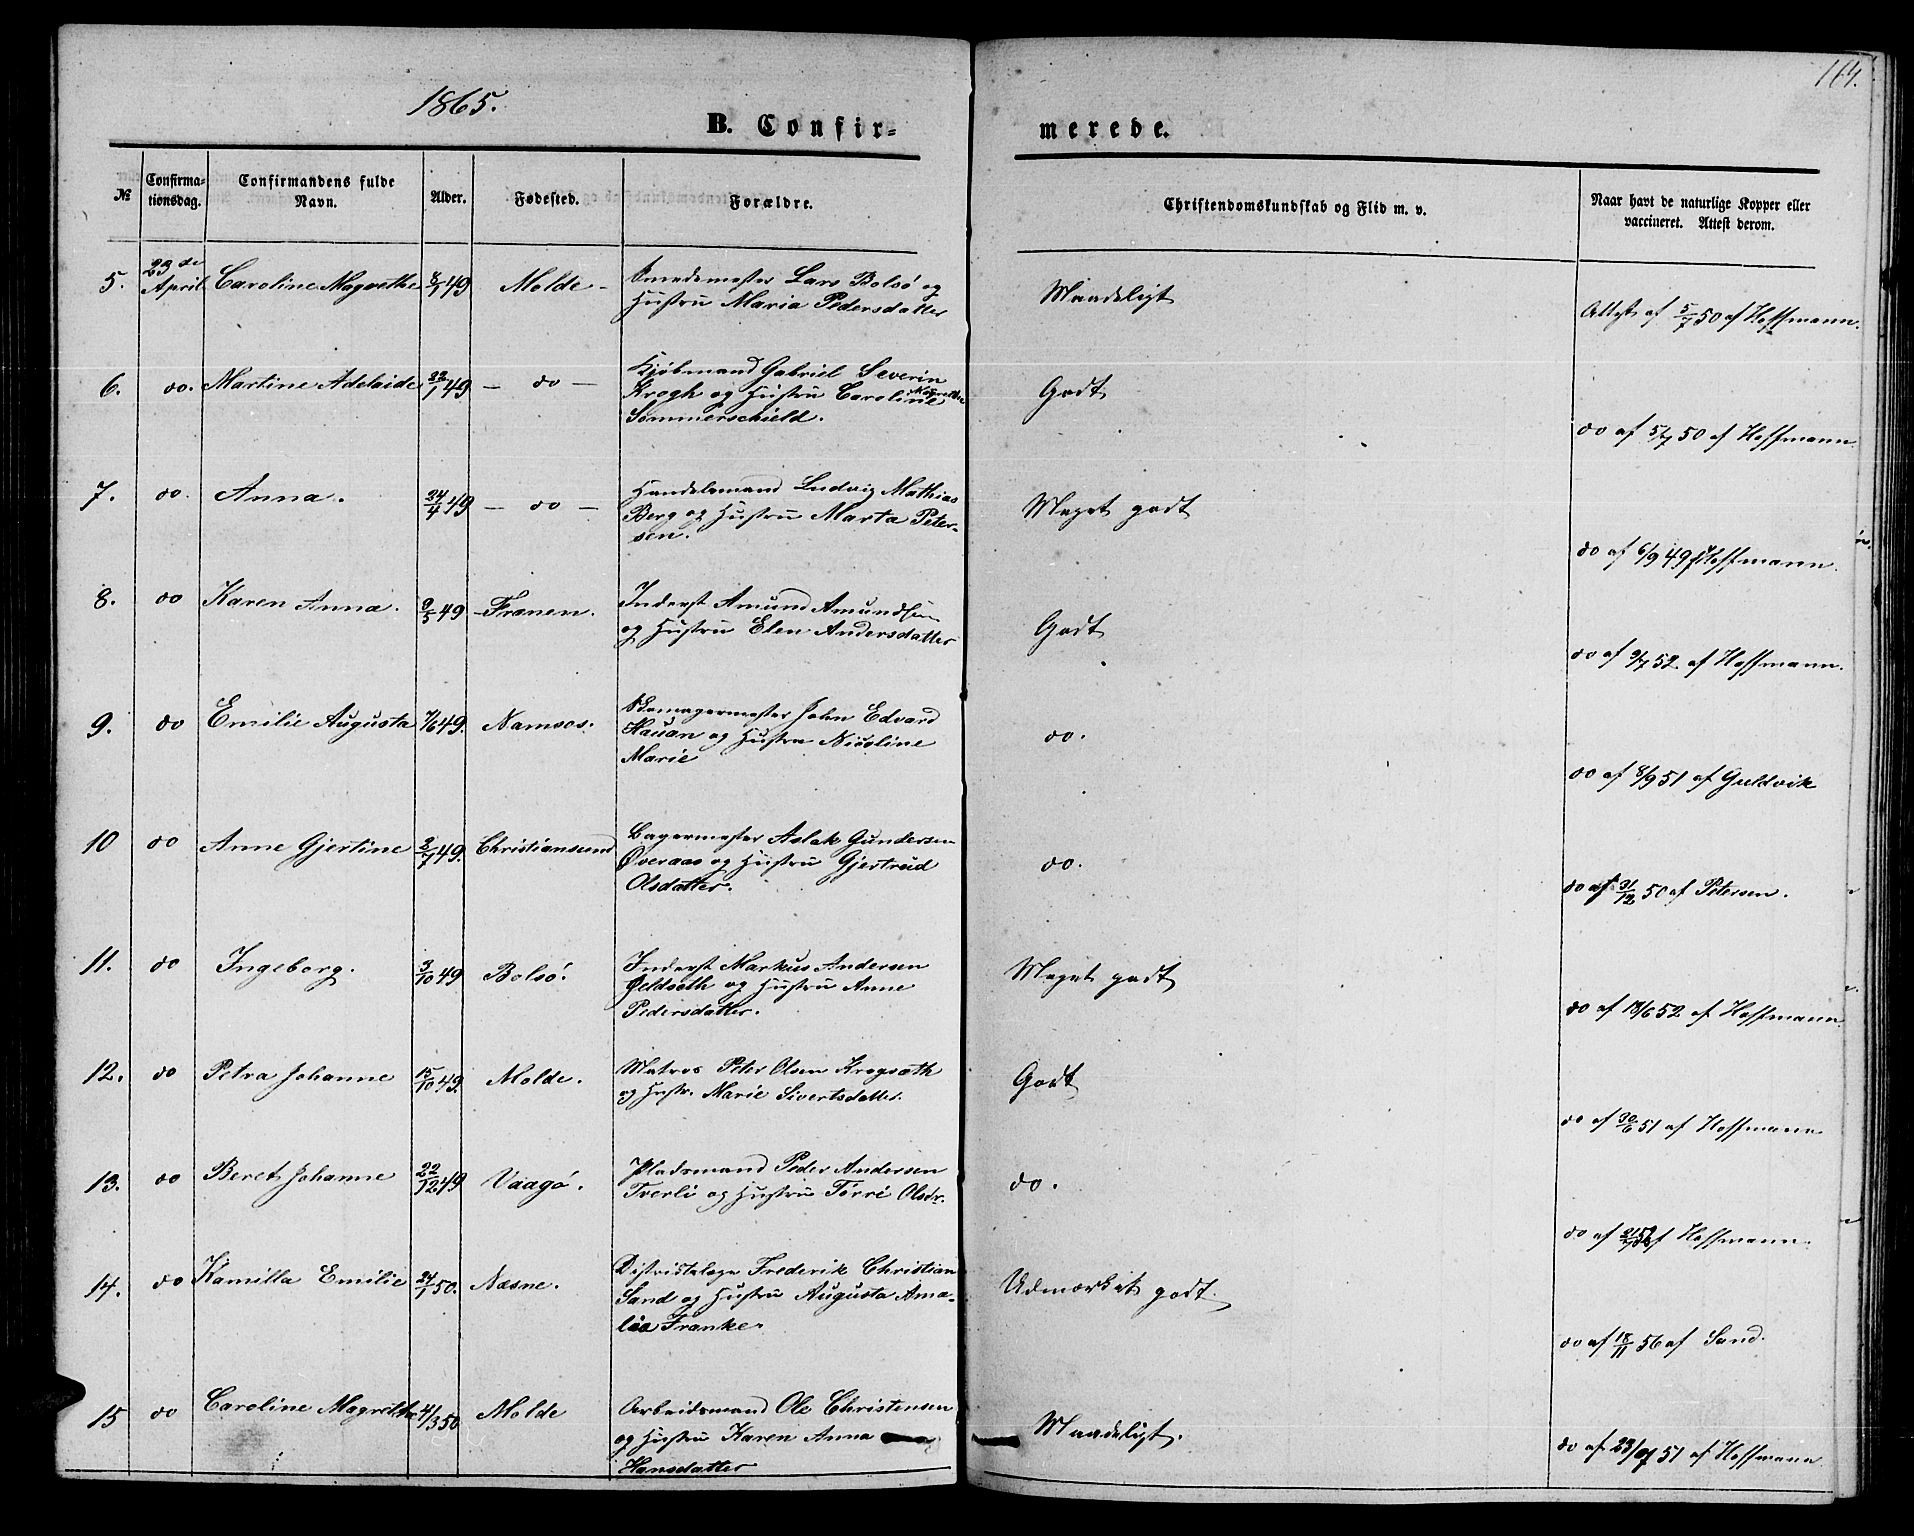 164.
1865.
B. Confir-
merede.
№
Confirma-
tionsdag.
Confirmandens fulde
Navn.
Alder.
Fødested.
Forældre.
Christendomskundskab og Flid m. v.
Naar havt de naturlige Kopper eller
vaccineret. Attest derom.
5. 23de April Caroline Magrethe 8/1 49 Molde - Smedemester Lars Bolsø og
Hustru Maria Pedersdatter
Maadeligt
Attest af 5/7 50 af Hoffmann.
6. do. Martine Adelaide 22/1 49 - do - Kjøbmand Gabriel Severin
Krogh og Hustru Caroline Magrethe
Sommerschield.
Godt
do af 5/7 50 af Hoffmann
7. do. Anna. 24/4 49 - do - Handelsmand Ludvig Mathias
Berg og Hustru Marta Peter-
sen.
Meget godt
do af 6/9 49 af Hoffmann.
8. do Karen Anna. 9/5 49 - Frænen. Inderst Amund Amundsen
og Hustru Elen Andersdatter
Godt
do af 9/7 52 af Hoffmann.
9. do Emilie Augusta 7/6 49. Namsos. Skomagermester John Edvard
Hauan og Hustru Nicoline
Marie
do.
do af 8/9 51 af Guldvik
10 do Anne Gjertine 2/7 49. Christiansund Bagermester Aslak Gundersen
Øveraas og Hustru Gjertrud
Olsdatter.
do.
do af 31/12 50 af Petersen.
11. do Ingeborg. 3/10 49 Bolsø. Inderst Markus Andersen
Øldseth og Hustru Anne
Pedersdatter.
Meget godt
do af 18/6 52 af Hoffmann
12. do Petra Johanne 15/10 49. Molde. Matros Peter Olsen Krogsæth
og Hustr. Marie Sivertsdatter.
Godt
do af 30/6 51 af Hoffmann
13. do Beret Johanne 22/12 49 Vaagø. Pladsmand Peder Andersen
Trerli og Hustru Torré Olsdr.
do.
do af af Hoffmann.
14. do Kamilla Emilie 24/1 50. Næsne. Distriktslæge Frederik Christian
Sand og Hustru Augusta Ama-
lia Franke.
Udmærket godt.
do af 18/11 56 af Sand.
15 do Caroline Magrethe 4/3 50 Molde Arbeidsmand Ole Christensen
og Hustru Karen Anna
Hansdatter
Maadeligt.
do af 23/7 51 af Hoffmann